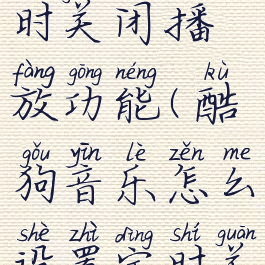 时关闭播
fàng gōng néng kù
放功能(酷
gǒu yīn lè zěn me
狗音乐怎么
shè zhì dìng shí guān
设置定时关